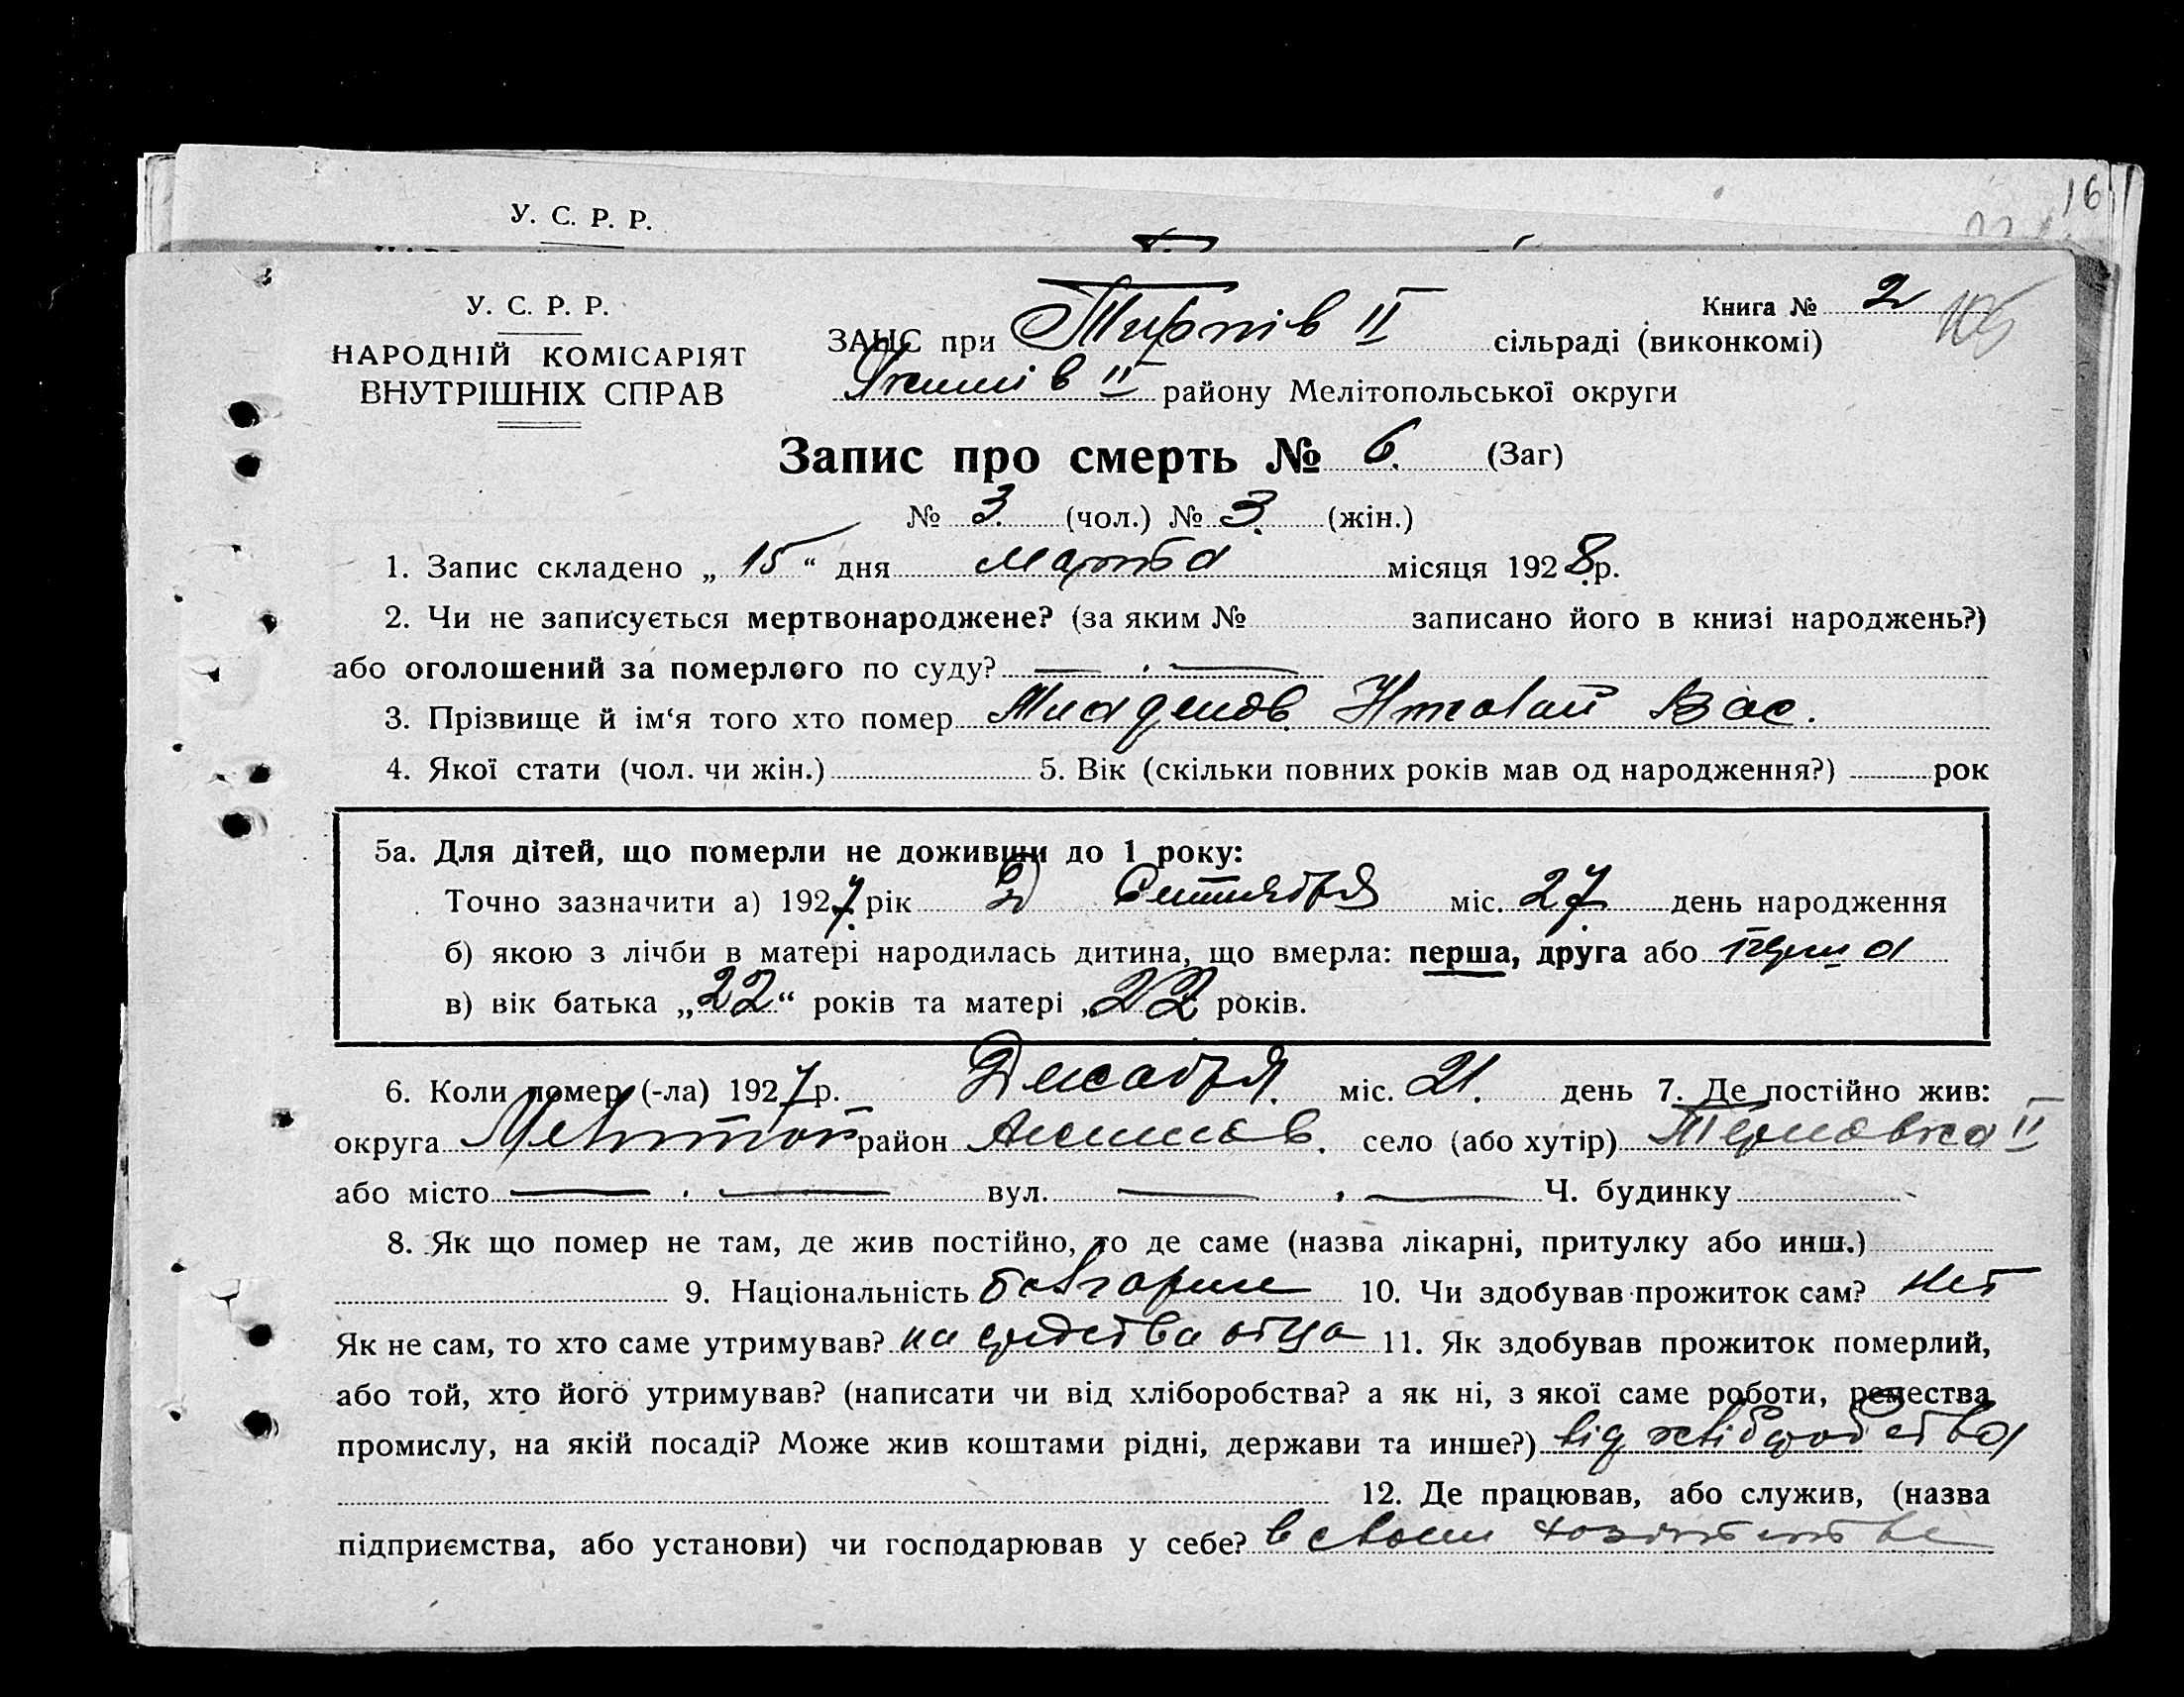 16
У. С. Р. Р.
У. С. Р. Р.
НАРОДНІЙ КОМІСАРІЯТ
ВНУТРІШНІХ СПРАВ
Книга № 2 105
ЗАНС при II сільраді (виконкомі)
II району Мелітопольської округи
Запис про смерть № 6. (Заг)
№ 3. (чол.) № 3. (жін.)
1. Запис складено „ 15 “ дня марта місяця 1928 р.
2. Чи не записується мертвонароджене? (за яким № записано його в книзі народжень?)
або оголошений за померлого по суду? — . —
3. Прізвище й ім‘я того хто помер Младенов Николай Вас.
4. Якої стати (чол. чи жін.) 5. Вік (скільки повних років мав од народження?) рок
5а. Для дітей, що померли не доживши до 1 року:
Точно зазначити а) 1927 рік Сентября міс. 27 день народження
б) якою з лічби в матері народилась дитина, що вмерла: перша, друга або перша
в) вік батька „22“ років та матері „22 років.
6. Коли помер (-ла) 1927 р. Декабря. міс. 21. день 7. Де постійно жив:
округа Мелитоп район Акимов. село (або хутір) Терновка II
або місто — . — вул. — , — Ч. будинку
8. Як що помер не там, де жив постійно, то де саме (назва лікарні, притулку або инш.)
9. Національність болгарин 10. Чи здобував прожиток сам? нет
Як не сам, то хто саме утримував? на средства отца 11. Як здобував прожиток померлий,
або той, хто його утримував? (написати чи від хліборобства? а як ні, з якої саме роботи, ремества
промислу, на якій посаді? Може жив коштами рідні, держави та инше?) від хліборобства
12. Де працював, або служив, (назва
підприємства, або установи) чи господарював у себе? в своем хозяйстве